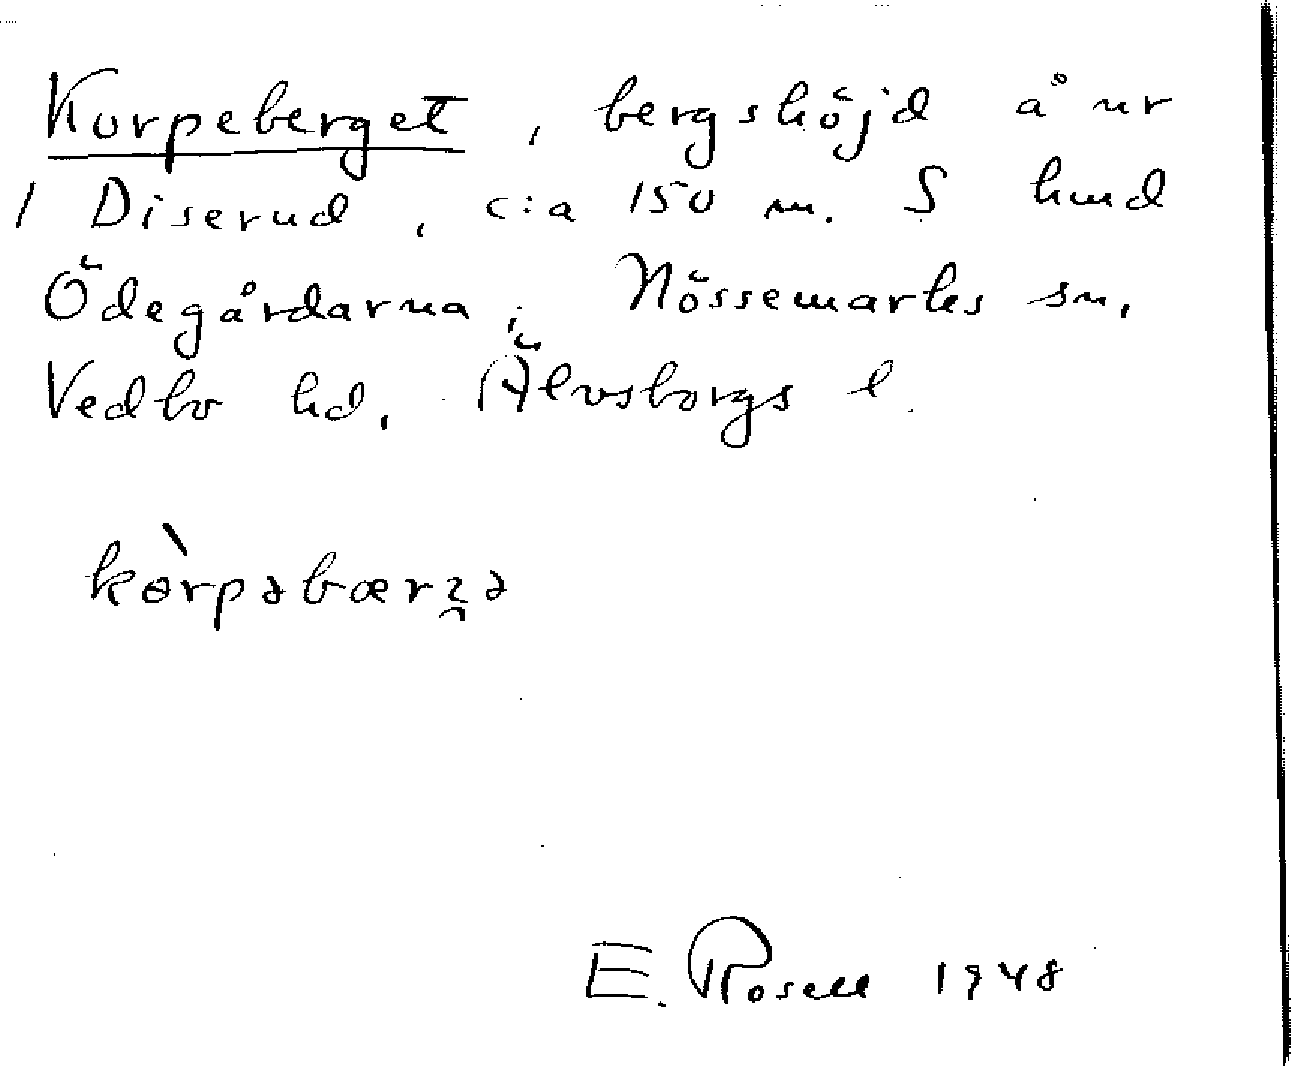 Korpeberget, bergshöjd å nr
1 Diserud, c:a 150 m. S hmd
Ödegårdarna, Nössemarks sn,
Vedbo hd, Älvsborgs l.
E. Rosell 1948